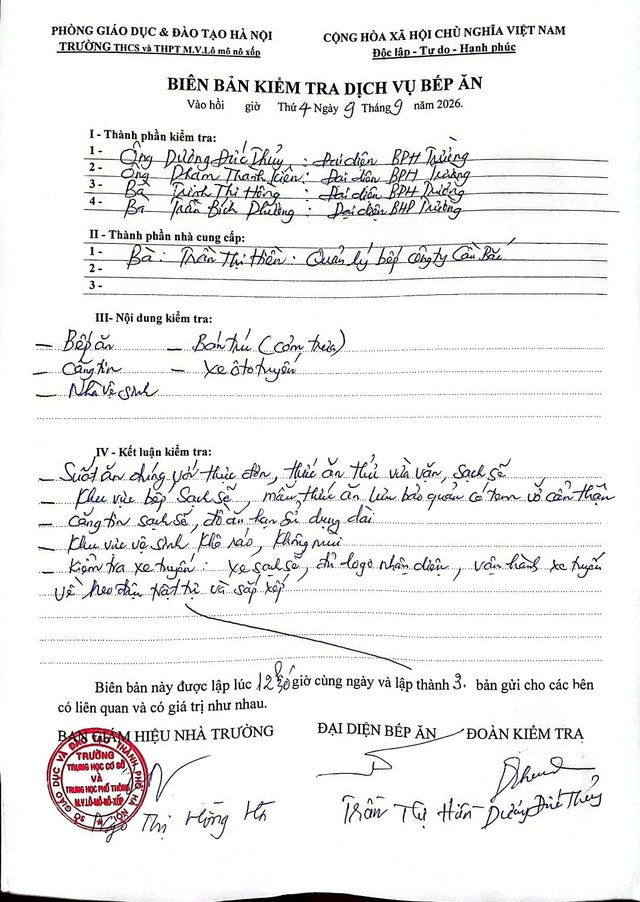 PHÒNG GIÁO DỤC & ĐÀO TẠO HÀ NỘI
TRƯỜNG THCS và THPT M.V.Lô mô nô xốp
CỘNG HÒA XÃ HỘI CHỦ NGHĨA VIỆT NAM
Độc lập - Tự do - Hạnh phúc
BIÊN BẢN KIỂM TRA DỊCH VỤ BẾP ĂN
Vào hồi giờ Thứ 4 Ngày 9 Tháng 9 năm 2026.
I - Thành phần kiểm tra:
1 - Ông Dương Đức Thủy : Đại diện BPH Trường
2 - Ông Phạm Thanh Kiên : Đại diện BPH Trường
3 - Bà Trịnh Thị Hồng : Đại diện BPH Trường
4 - Bà Trần Bích Phương : Đại diện BHP Trường
II - Thành phần nhà cung cấp:
1 - Bà : Trần Thị Hiền : Quản lý bếp công ty
2 -
3 -
III- Nội dung kiểm tra:
- Bếp ăn - Bán trú (cơm trưa)
- Căng tin - Xe ôtô tuyến
- Nhà vệ sinh
IV - Kết luận kiểm tra:
- Suất ăn đúng với thực đơn, thức ăn đủ vừa văn, sạch sẽ
- Khu vực bếp sạch sẽ, mẫu thức ăn lưu bảo quản có tem cẩn thận
- Căng tin sạch sẽ, đồ ăn hạn sử dụng dài
- Khu vực vệ sinh khô ráo, không mùi
- Kiểm tra xe tuyến : xe sạch sẽ, đủ logo nhận diện, vận hành xe tuyến
về trật tự và sắp xếp
Biên bản này được lập lúc 12h30 giờ cùng ngày và lập thành 3. bản gửi cho các bên
có liên quan và có giá trị như nhau.
BAN GIÁM HIỆU NHÀ TRƯỜNG
ĐẠI DIỆN BẾP ĂN
ĐOÀN KIỂM TRA
SỞ GIÁO DỤC VÀ ĐÀO TẠO THÀNH PHỐ HÀ NỘI
TRƯỜNG
TRUNG HỌC CƠ SỞ
VÀ
TRUNG HỌC PHỔ THÔNG
M.V.LÔ-MÔ-NÔ-XỐP
Ngô Thị Hồng
Trần Thị Hiền
Dương Đức Thủy